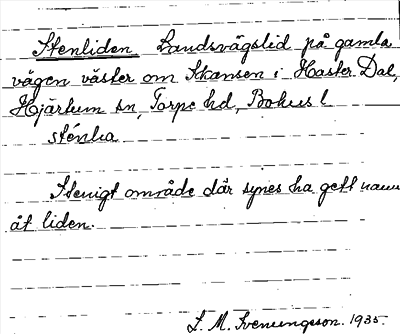 Stenliden Landsvägslid på gamla
vägen väster om Skansen i Haster Dal,
Hjärtum sn, Torpe hd, Bohus l
sténlia
Stenigt område där synes ha gett namn
åt liden.
S. M. Svenungsson. 1935.